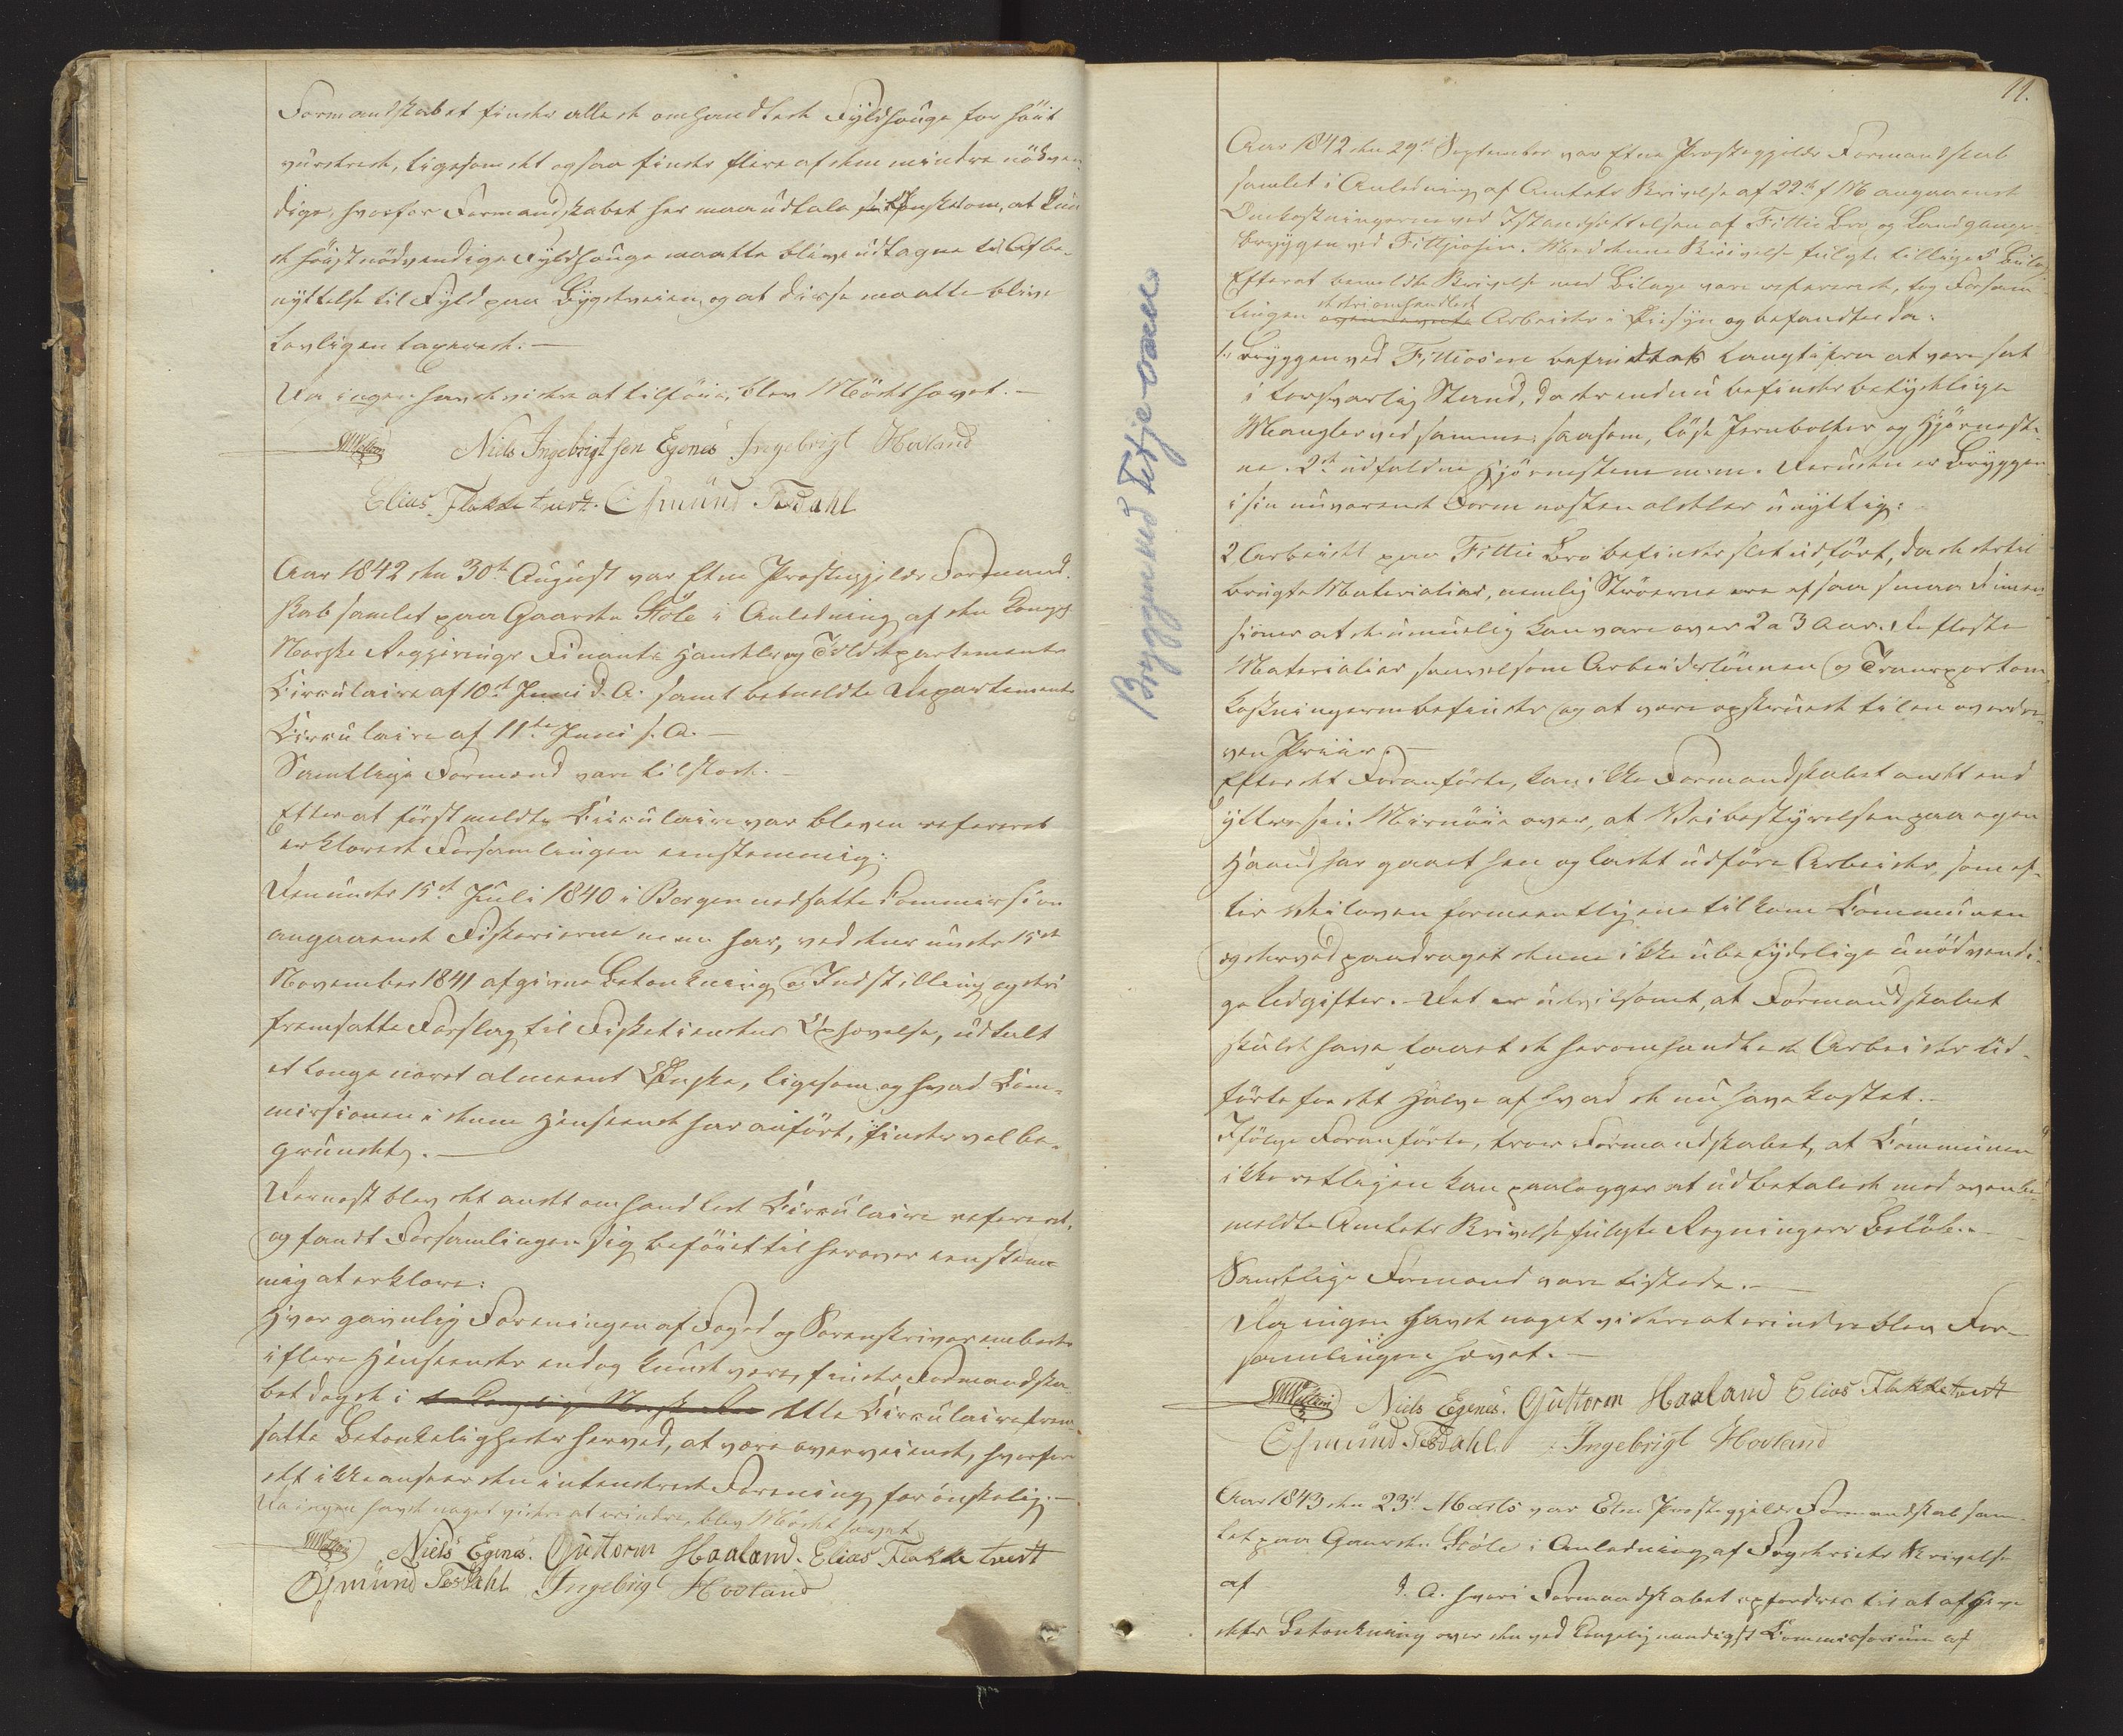 Formandskabet finder alle de omhandlede Fyldhouge for höit
vurderede, ligesom det ogsaa finder flere af dem mindre nödven-
dige, hvorfor Formandskabet her maa udtale sit Ønske om, at kun
de höist nödvendige Fyldhouge maatte blive udtagne til Afbe-
nyttelse til Fyld paa Bygdeveien, og at disse maatte blive
Lovligen taxerede.—
Da ingen havde videre at tilföie, blev Mödet hævet.—
Niels Ingebrigtsen Egenes Ingebrigt Hovland
Elias Flakketvedt. Osmund Tesdahl
Aar 1842 den 30te August var Etne Prestegjelds Formand-
skab samlet paa Gaarden Støle i Anledning af den Kongl.
Norske Regjerings Finants Handels og Told Departements
Circulaire af 10de Juni d. A. samt bemeldte Departements
Circulaire af 11te Juni s. A.—
Samtlige Formænd vare tilstede.—
Efter at först meldte Circulaire var bleven refereret
erklærede Forsamlingen eenstemmig:
Den under 15de Juli 1840 i Bergen nedsatte Commission
angaaende Fiskerierne m. m. har, ved den under 15de
November 1841 afgivne Betænkning og Indstilling og deri
fremsatte Forslag til Fisketiendens Ophævelse, udtalt
et længe næret almeent Ønske, ligesom og hvad Com-
missionen i denne Henseende har anfört, findes vel be-
grundet.—
Dernæst blev det andet omhandlede Circulaire refereret,
og fandt Forsamlingen sig beföiet til herover eenstem-
mig at erklære:
Hvor gavnlig Foreningen af Foged og Sorenskriverembeder
i flere Henseender endog kunde være, finder Formandska-
bet dog de i dette Circulaire frem-
satte Betænkeligheder herved, at være overveiende, hvorfor
det ikke anseer den intenderede Forening for önskelig.—
Da ingen havde noget videre at erindre, blev Mödet hævet
Niels Egenes. Guttorm Haaland. Elias Flakketvedt
Osmund Tesdahl Ingebrigt Hovland
Bryggen ved Fitje-osen
11.
Aar 1842 den 29de September var Etne Prestegjelds Formandskab
samlet i Anledning af Amtets Skrivelse af 22de f. M. angaaende
Omkostningerne ved Istandsættelsen af Fittie Bro og Landgangs-
bryggen ved Fittjeosen. Med denne Skrivelse fulgte tillige 5 Bilag.
Efter at bemeldte Skrivelse med Bilage vare refererede, tog Forsam-
lingen de deri omhandlede Arbeider i Øiesyn og befandtes da:
1., Bryggen ved Fittiosen befindtes langt ifra at være sat
i forsvarlig Stand, da der endnu befindes betydelige
Mangler ved samme, saasom, löse Jernbolter og Hjörneste-
ne. 2de udfaldne Hjörnestene m. m. Desuden er Bryggen
i sin nuværende Form næsten aldeles unyttig:
2 Arbeidet paa Fittie Bro befindes slet udfört, da de dertil
brugte Materialier, nemlig Ströerne ere af saa smaa Dimen-
sioner at de umuelig kan vare over 2 a 3 Aar. De fleste
Materialier saavelsom Arbeidslönnen og Transportom-
kostningerne befindes og at være opskruede til en overdre-
ven Priis.—
Efter det Foranförte, kan ikke Formandskabet andet end
yttre sin Misnöie over, at Veibestyrelsen paa egen
Haand har gaaet hen og ladet udföre Arbeider, som ef-
ter Veiloven formeentligen tilkom Communen
og derved paadraget denne ikke ubetydelige unödvendi-
ge Udgifter. Det er utvilsomt, at Formandskabet
skulde have faaet de heromhandlede Arbeider ud-
förte for det Halve af hvad de nu have kostet.—
Ifölge Foranförte, troer Formandskabet, at Communen
ikke retligen kan paalægges at udbetale de med ovenbe-
meldte Amtets Skrivelse fulgte Regningers Belöb.—
Samtlige Formænd vare tilstede.—
Da ingen havde noget videre at erindre blev For-
samlingen hævet.—
Niels Egenes. Guttorm Haaland Elias Flakketvedt
Osmund Tesdahl. Ingebrigt Hovland
Aar 1843 den 23de Marts var Etne Prestegjelds Formandskab sam-
let paa Gaarden Støle i Anledning af Fogderiets Skrivelse
af d. A. hvori Formandskabet opfordres til at afgive
dets Betænkning over den ved Kongelig naadigst Commissorium af